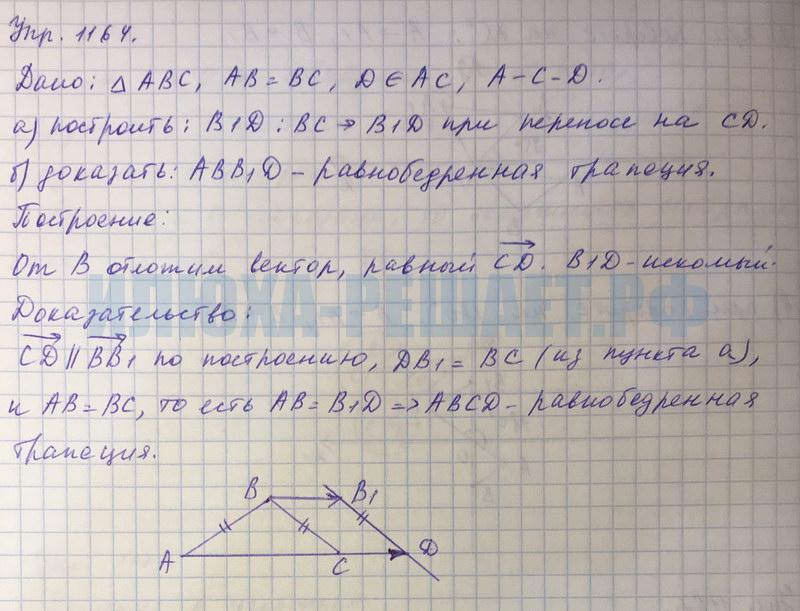 Упр. 1164.
Дано: △ABC, AB=BC, D∈AC, A-C-D.
а) построить: B1D: BC→B1D при переносе на CD.
б) доказать: ABB1D - равнобедренная трапеция.
Построение:
От B отложим вектор, равный CD. B1D-искомый.
ИЛЮХА-РЕШАЕТ.РФ
Доказательство:
CD || BB1 по построению, DB1 = BC (из пункта а),
и AB=BC, то есть AB=B1D => ABCD - равнобедренная
трапеция.
B B1
A C D